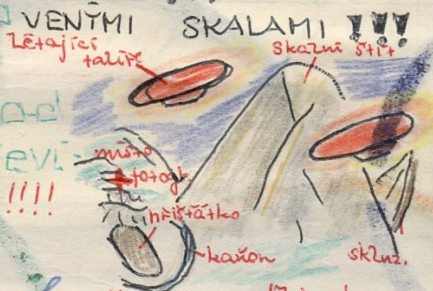 VENÝMI SKALAMI !!!
Létající
talíře
skalní štít
místo
fotogr
!!!!
hřišťátko
kaňon
skluz.